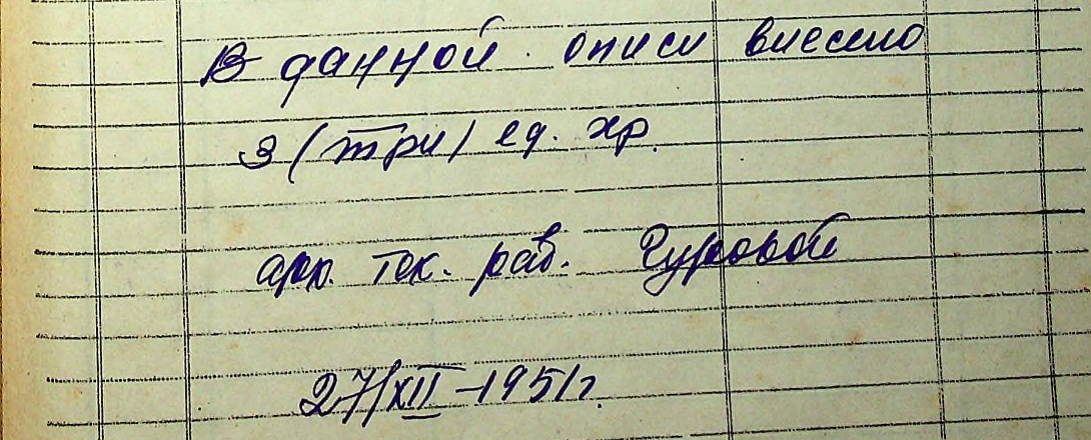 В данной описи внесено
3 (три) ед. хр.
арх. тех. раб. Гуровой
27/XII-1951г.